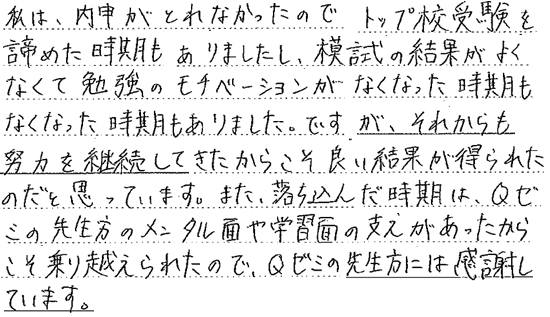 私は、内申がとれなかったので トップ校受験を
諦めた時期もありましたし、模試の結果がよく
なくて勉強のモチベーションがなくなった時期も
なくなった時期もありました。ですが、それからも
努力を継続してきたからこそ良い結果が得られた
のだと思っています。また、落ち込んだ時期は、Qゼ
ミの先生方のメンタル面や学習面の支えがあったから
こそ乗り越えられたので、Qゼミの先生方には感謝し
ています。